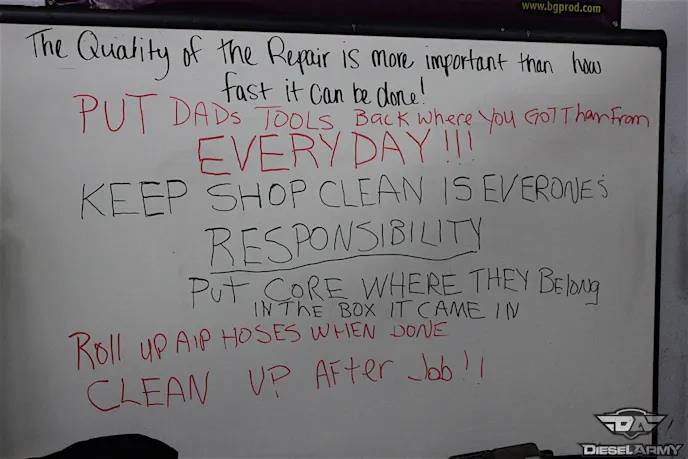 www.bgprod.com
The Quality of the Repair is more important than how
fast it can be done!
PUT DADs TOOLS Back Where You GOT Tham From
EVERY DAY!!!
KEEP SHOP CLEAN IS EVERONE'S
RESPONSIBILITY
Put CORE WHERE THEY BElong
IN THE BOX IT CAME IN
Roll UP AIP HOSES WHEN DONE
CLEAN UP AFTer Job!!
DA
DIESELARMY